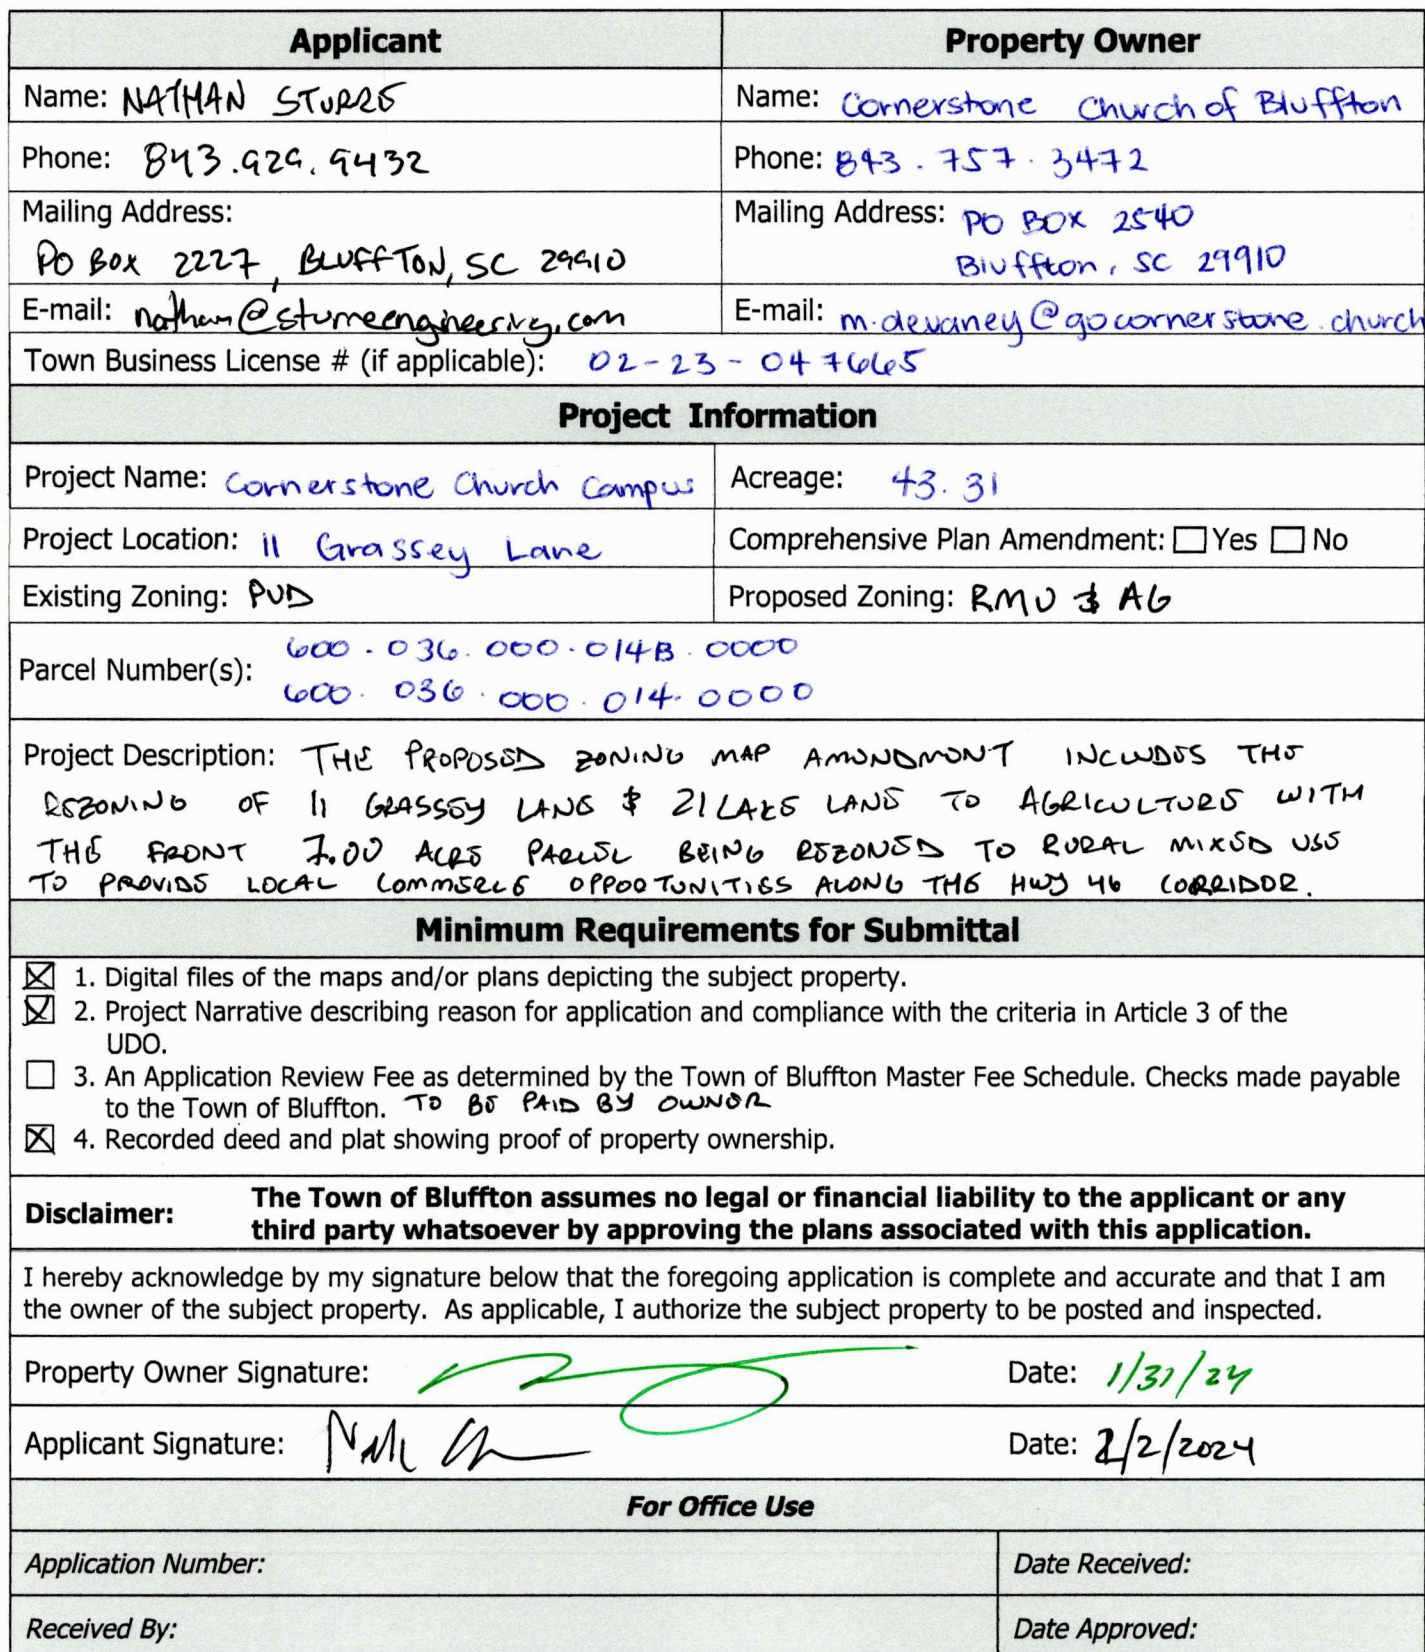 Applicant Property Owner
Name: NATHAN STURRE Name: Cornerstone Church of Bluffton
Phone: 843.929.9432 Phone: 843.757.3472
Mailing Address: Mailing Address: PO BOX 2540
PO BOX 2227, BLUFFTON, SC 29910 Bluffton, SC 29910
E-mail: E-mail: m.devaney@gocornerstone.church
Town Business License # (if applicable): 02-23-047665
Project Information
Project Name: Cornerstone Church Campus Acreage: 43.31
Project Location: 11 Grassey Lane Comprehensive Plan Amendment: ☐ Yes ☐ No
Existing Zoning: PUD Proposed Zoning: RMU & AG
600.036.000.014B.0000
Parcel Number(s):
600.036.000.014.0000
Project Description: THE PROPOSED ZONING MAP AMENDMENT INCLUDES THE
REZONING OF 11 GRASSEY LANE & 21 LAKE LANE TO AGRICULTURE WITH
THE FRONT 7.00 ACRE PARCEL BEING REZONED TO RURAL MIXED USE
TO PROVIDE LOCAL COMMERCE OPPORTUNITIES ALONG THE HWY 46 CORRIDOR.
Minimum Requirements for Submittal
☒ 1. Digital files of the maps and/or plans depicting the subject property.
☒ 2. Project Narrative describing reason for application and compliance with the criteria in Article 3 of the
UDO.
☐ 3. An Application Review Fee as determined by the Town of Bluffton Master Fee Schedule. Checks made payable
to the Town of Bluffton. TO BE PAID BY OWNER
☒ 4. Recorded deed and plat showing proof of property ownership.
Disclaimer: The Town of Bluffton assumes no legal or financial liability to the applicant or any
third party whatsoever by approving the plans associated with this application.
I hereby acknowledge by my signature below that the foregoing application is complete and accurate and that I am
the owner of the subject property. As applicable, I authorize the subject property to be posted and inspected.
Property Owner Signature: Date: 1/31/24
Applicant Signature: Date: 2/2/2024
For Office Use
Application Number: Date Received:
Received By: Date Approved: